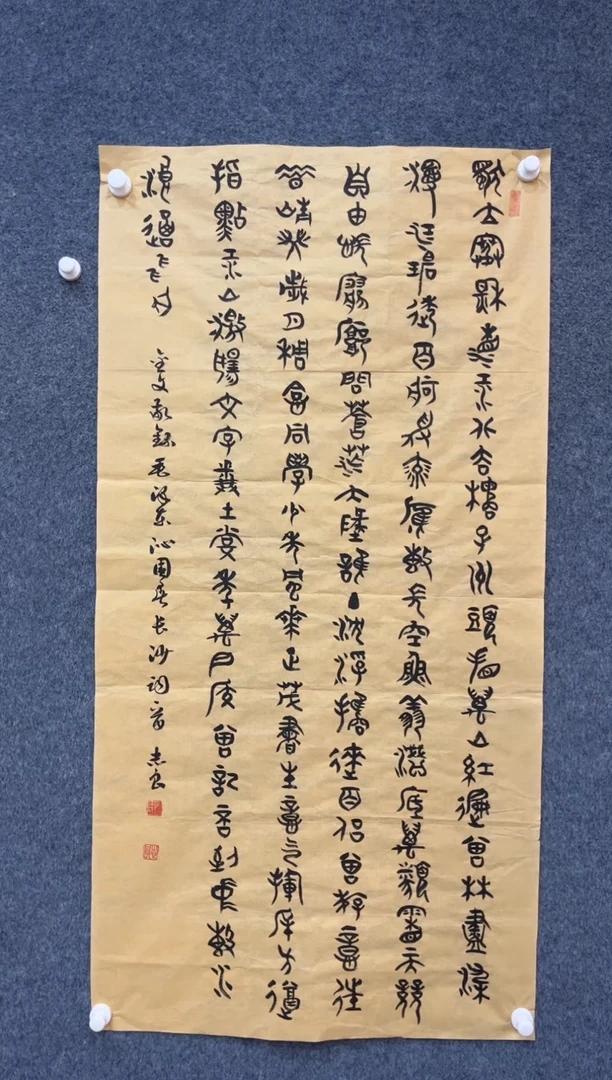 獨立寒秋湘江北去橘子洲頭看萬山紅遍層林盡染
漫江碧透百舸爭流鷹擊長空魚翔淺底萬類霜天競
自由悵寥廓問蒼茫大地誰主沉浮攜來百侶曾游憶往
昔崢嶸歲月稠恰同學少年風華正茂書生意氣揮斥方遒
指點江山激揚文字糞土當年萬戶侯曾記否到中流擊水
浪遏飛舟
金文敬録毛澤东沁園春长沙词一首 志良